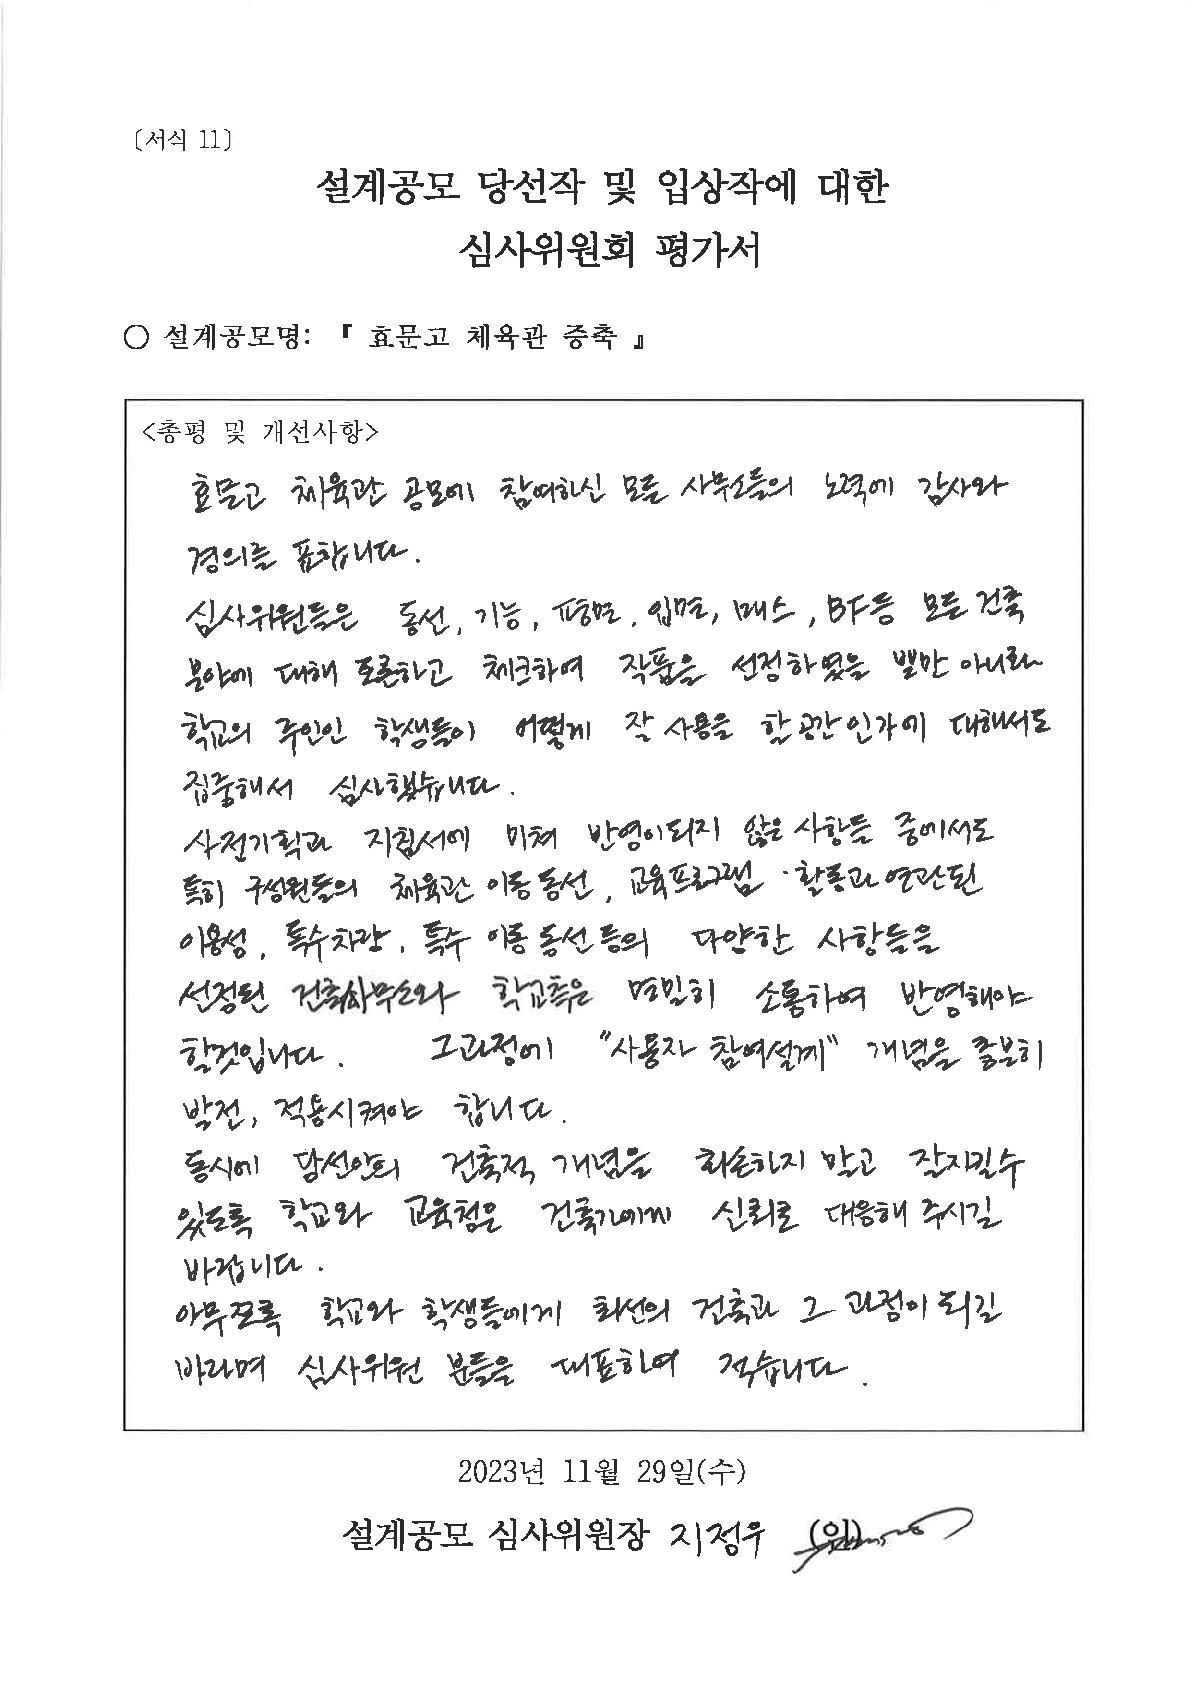 〔서식 11〕
설계공모 당선작 및 입상작에 대한
심사위원회 평가서
○ 설계공모명: 『 효문고 체육관 증축 』
<총평 및 개선사항>
효문고 체육관 공모에 참여하신 모든 사무소들의 노력에 감사와
경의를 표합니다.
심사위원들은 동선, 기능, 평면, 입면, 매스, BF등 모든 건축
분야에 대해 토론하고 체크하여 작품을 선정하였을 뿐만 아니라
학교의 주인인 학생들이 어떻게 잘 사용을 할 공간인가에 대해서도
집중해서 심사했습니다.
사전기획과 지침서에 미쳐 반영이되지 않은 사항들 중에서도
특히 구성원들의 체육관 이동 동선, 교육프로그램·활동과 연관된
이용성, 특수차량, 특수 이동 동선 등의 다양한 사항들을
선정된 건축사무소와 학교측은 면밀히 소통하여 반영해야
할것입니다. 그과정에 "사용자 참여설계" 개념을 충분히
발전, 적용시켜야 합니다.
동시에 당선안의 건축적 개념을 훼손하지 말고 잘지킬수
있도록 학교와 교육청은 건축가에게 신뢰로 대응해 주시길
바랍니다.
아무쪼록 학교와 학생들에게 최선의 건축과 그 과정이 되길
바라며 심사위원 분들을 대표하여 적습니다.
2023년 11월 29일(수)
설계공모 심사위원장 지정우 (인)